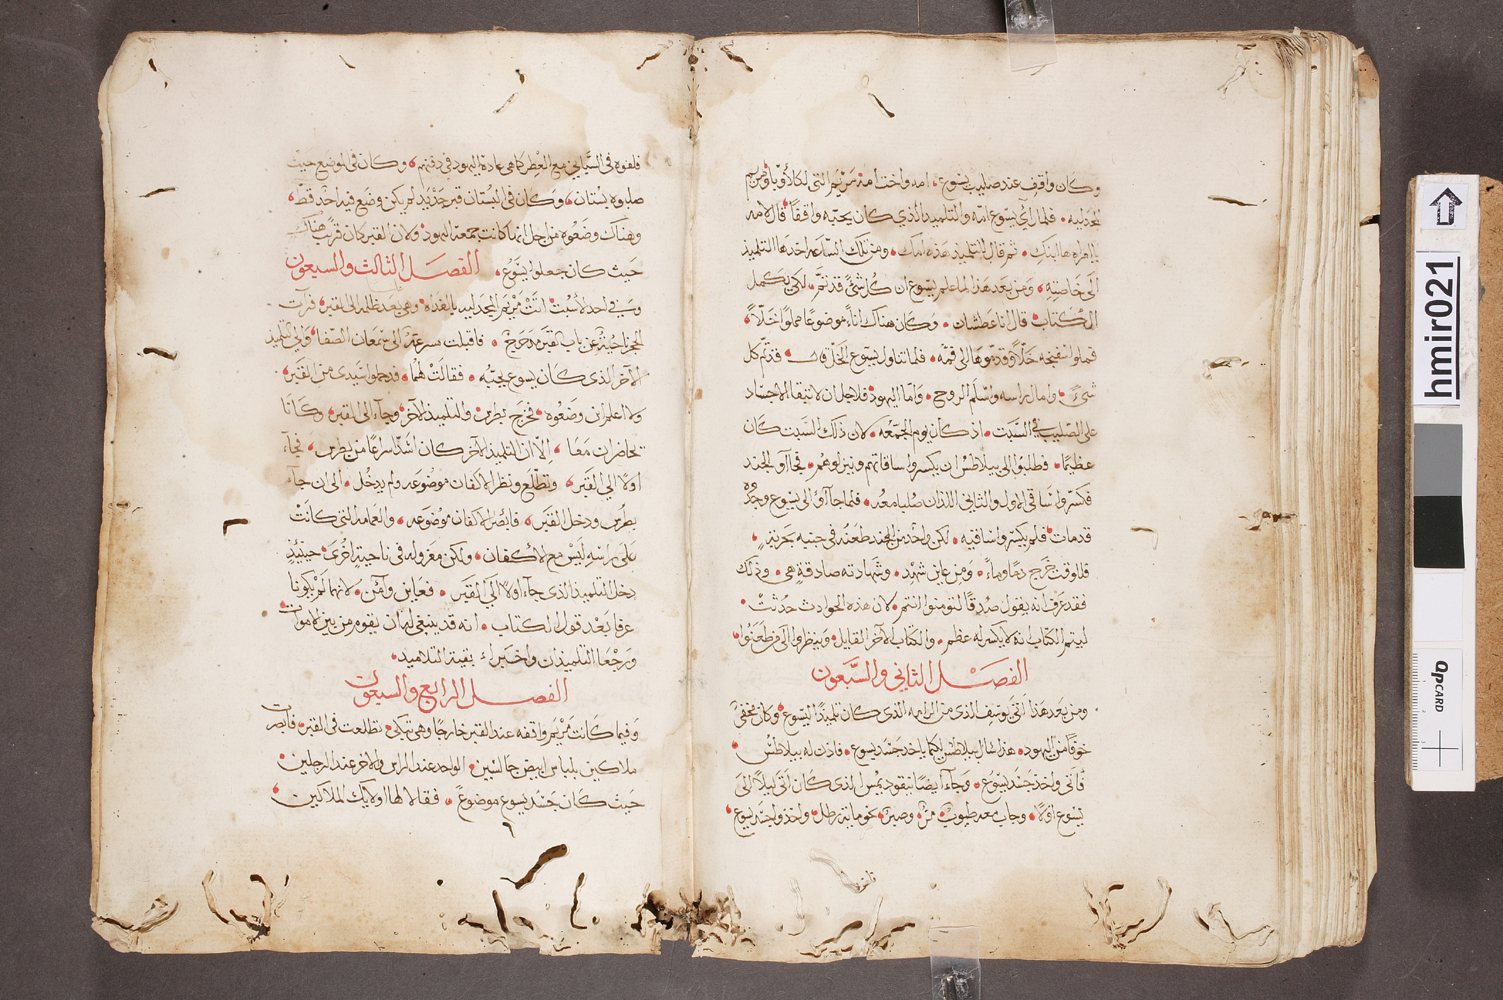 وكان واقف عند صليب يسوع امه واخت امه مريم التي لكلاوبا ومريم
المجدليه فلما رأى يسوع امه والتلميذ الذي كان يحبه واقفًا قال لامه
يا امراه ها ابنك ثم قال للتلميذ هذه امك ومن تلك الساعه اخدها التلميذ
الى خاصته ومن بعد هذا لما علم يسوع ان كل شئ قد تم لكي يكمل
الكتاب قال انا عطشان وكان هناك اناءً موضوعًا مملوا خلّاً
فملوا سفنجه خلّاً وقدموها الى فمه فلما تناول يسوع الخل قال قد تم كل
شيءٍ وامال راسه واسلم الروح واما اليهود فلاجل ان لا تبقا الاجساد
على الصليب في السبت اذ كان يوم الجمعه لان ذلك السبت كان
عظيمًا فطلبوا الى بيلاطس ان يكسروا ساقاتهم وينزلوهم فجااو الجند
فكسروا ساقي الاول والثاني اللذان صلبا معه فلما جاآوا الى يسوع وجدوه
قد مات فلم يكسروا ساقيه لكن واحد من الجند طعنه في جنبه بحربةٍ
فللوقت خرج دمًا وماءً ومن عاين شهد وشهادته صادقة هي وذلك
فقد عرف انه يقول صدقًا لتومنوا انتم لان هذه الحوادث حدثت
ليتم الكتاب انه لا يكسر له عظم والكتاب الآخر القايل وسينظروا الى من طعنوا
الفصل الثاني والسبعون
ومن بعد هذا اتى يوسف الذى من الرامه الذي كان تلميذًا ليسوع وكان مخفي
خوفًا من اليهود هذا سال بيلاطس لكيما ياخد جسد يسوع فاذن له بيلاطس
فاتى واخذ جسد يسوع وجآء ايضًا نيقوديمس الذي كان اتى ليلًا الى
يسوع اولًا وجاب معه حنوط من مر وصبر نحو ماية رطل واخذوا جسد يسوع
فلفوه في السباني مع العطر كما هي عادة اليهود في دفنهم وكان في الموضع حيث
صلبوه بستان وكان في البستان قبر جديد لم يكن وضع فيه احد قط
وهناك وضعوه من اجل انها كانت جمعة اليهود ولان القبر كان قريب هناك
حيث كان جعلوا يسوع الفصل الثالث والسبعون
وفي احد السبت اتت مريم المجدليه بالغداه وهي بعد ظلمه الى القبر فرأت
الحجر اخذ عن باب القبر مدحرج فاقبلت مسرعة الى سمعان الصفا والى التلميذ
الآخر الذى كان يسوع يحبه فقالت لهما قد حملوا سيدى من القبر
ولا اعلم اين وضعوه فخرج بطرس والتلميذ الآخر وجآء الى القبر وكانا
يحاضران معًا إلّا ان التلميذ الآخر كان اشد اسراعًا من بطرس فجآء
اولًا الى القبر وتطلّع ونظر الاكفان موضوعه ولم يدخل الى ان جآء
بطرس ودخل القبر فابصر الاكفان موضوعه والعمامه التي كانت
على راسه ليس مع الاكفان ولكن معزوله في ناحية اخرى حينيذٍ
دخل التلميذ الذي جآء اولًا الى القبر فعاين وآمن لانهما لم يكونا
عرفا بعد قول الكتاب انه قد ينبغي له ان يقوم من بين الاموات
ورجعا التلميذان واخبراء بقية التلاميد
الفصل الرابع والسبعون
وفيما كانت مريم واقفه عند القبر خارجًا وهي تبكي تطلعت في القبر فابصرت
ملاكين بلباس ابيض جالسين الواحد عند الراس والاخر عند الرجلين
حيث كان جسد يسوع موضوعً فقالا لها اوليك الملاكين
hmir021
QPCARD